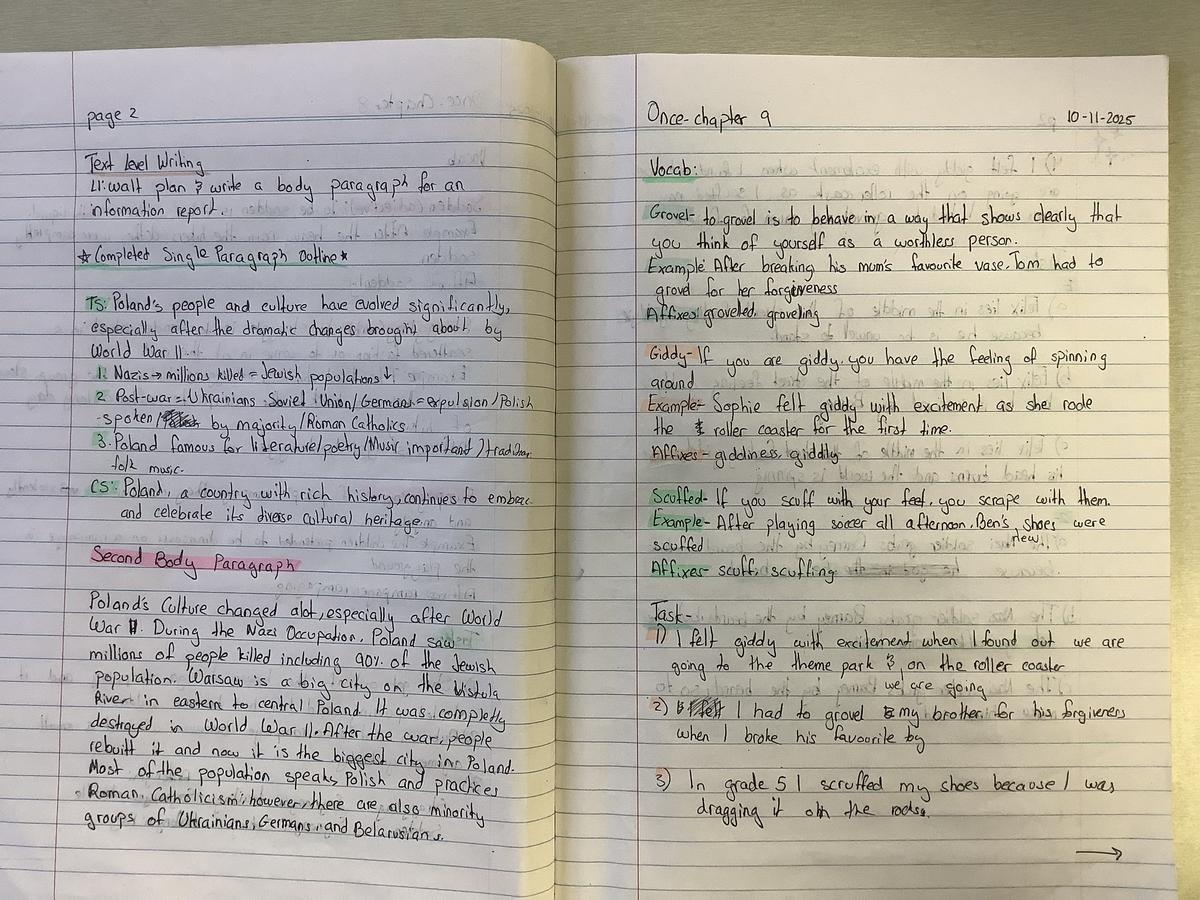 page 2
Text level Writing
LI: walt plan & write a body paragraph for an
information report.
★Completed Single Paragraph Outline★
TS: Poland's people and culture have evolved significantly,
especially after the dramatic changes brought about by
World War II.
1. Nazis → millions killed = Jewish populations ↓
2 Post-war = Ukrainians Soviet Union/Germans = expulsion/Polish
spoken/ by majority/Roman Catholics
3. Poland famous for literature/poetry/Music important/
folk music.
CS: Poland, a country with rich history, continues to
and celebrate its diverse cultural heritage
Second Body Paragraph
Poland's Culture changed alot, especially after World
War II. During the Nazi Occupation, Poland saw
millions of people killed including 90% of the Jewish
population. Warsaw is a big city on the Vistula
River in eastern to central Poland. It was completly
destroyed in World War II. After the war, people
rebuilt it and now it is the biggest city in Poland.
Most of the population speaks Polish and practices
Roman Catholicism; however, there are also minority
groups of Ukrainians, Germans, and Belarusians.
Once- chapter 9
10-11-2025
Vocab:
Grovel- to grovel is to behave in a way that shows clearly that
you think of yourself as a worthless person.
Example: After breaking his mum's favourite vase, Tom had to
grovel for her forgiveness
Affixes: groveled, groveling
Giddy- If you are giddy, you have the feeling of spinning
around
Example- Sophie felt giddy with excitement as she rode
the roller coaster for the first time.
Affixes- giddiness, giddily
Scuffed- If you scuff with your feet, you scrape with them.
Example- After playing soccer all afternoon. Ben's shoes were
new
scuffed
Affixes- scuff, scuffing
Task-
1) I felt giddy with excitement when I found out we are
going to the theme park & on the roller coaster
we are going
2) I had to grovel my brother for his forgiveness
when I broke his favoorite by
3) In grade 5 I scruffed my shoes because I was
dragging it on the rocks.